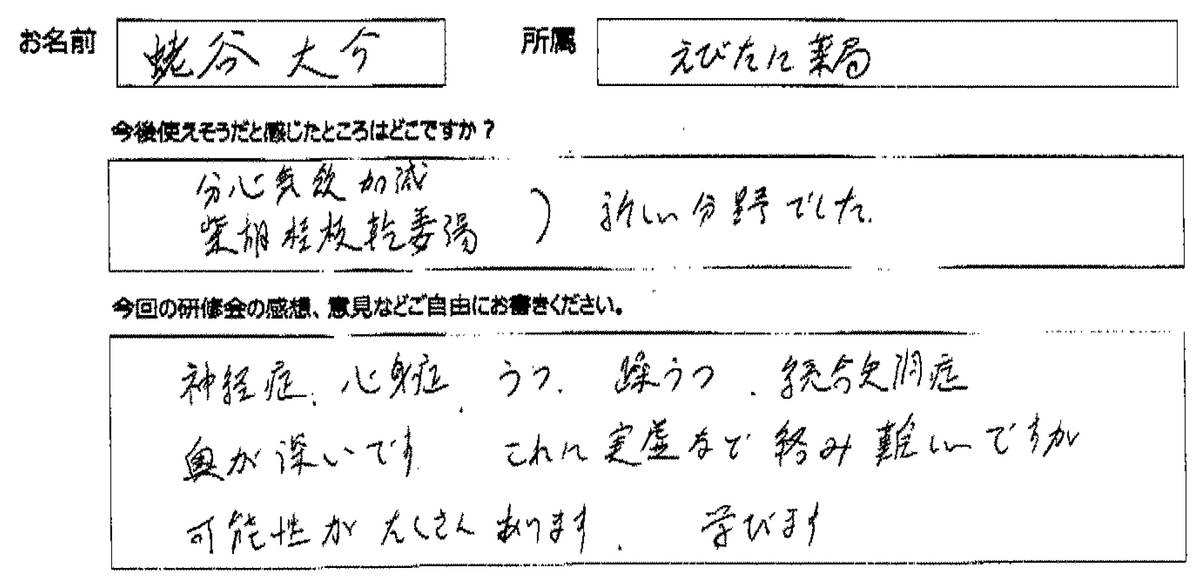 お名前 蛯谷 大介 所属 えびたに薬局
今後使えそうだと感じたところはどこですか？
分心気飲加減
柴胡桂枝乾姜湯 ) 新しい分野でした.
今回の研修会の感想、意見などご自由にお書きください。
神経症、心身症、うつ、躁うつ、統合失調症
奥が深いです これに実虚など絡み難しいですが
可能性がたくさんあります. 学びます